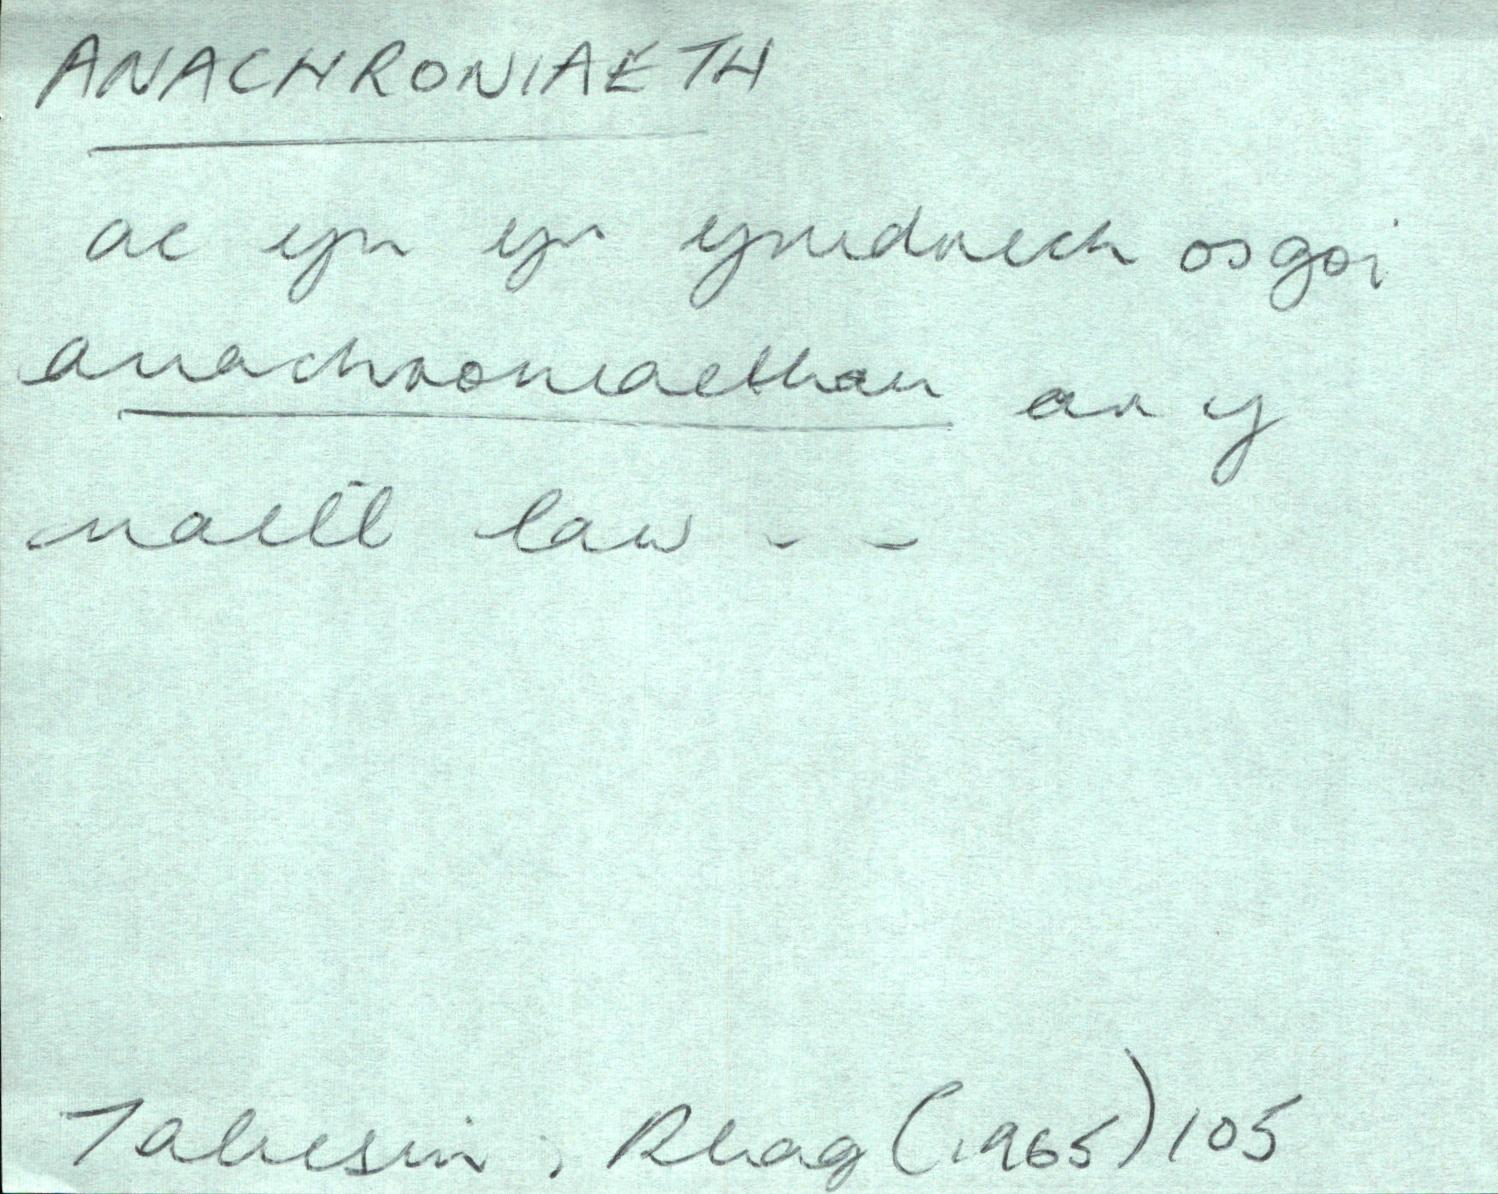 ANACHRONIAETH
ac yn yr ymdrech osgoi
anachroniaethau ar y
naill law - -
Taliesin, Rhag (1965) 105